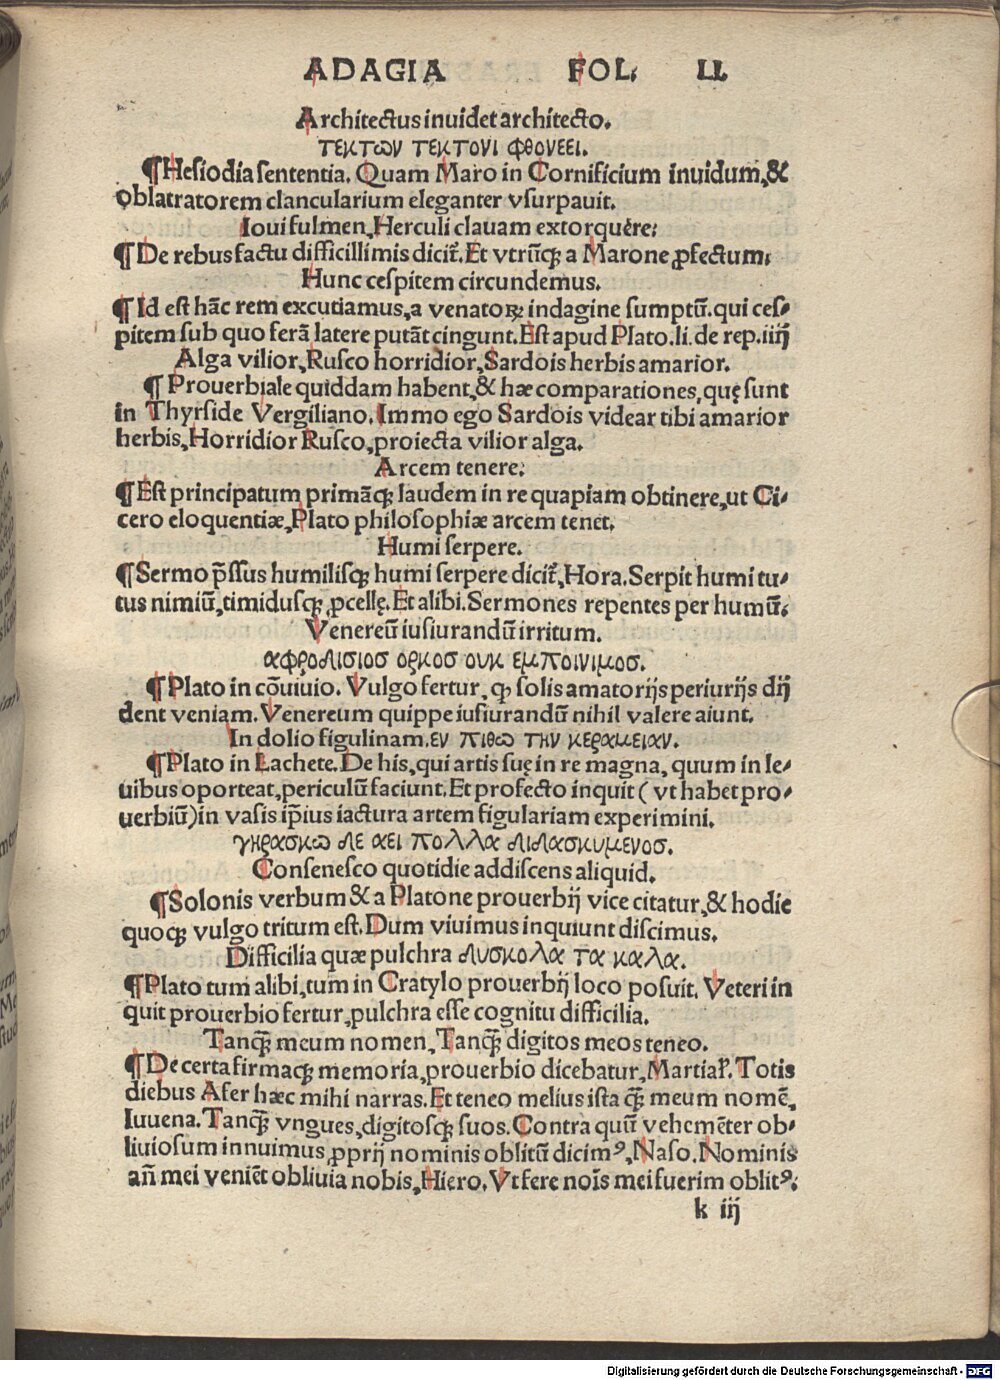 ADAGIA FOL. LI.
Architectus inuidet architecto.
τεκτων τεκτονι φθονεει.
¶Hesiodia sententia. Quam Maro in Cornificium inuidum,&
oblatratorem clancularium eleganter vsurpauit.
Ioui fulmen, Herculi clauam extorquere:
¶De rebus factu difficillimis dicit᷑. Et vtrūqꝫ a Marone ꝓfectum:
Hunc cespitem circundemus.
¶Id est hāc rem excutiamus, a venatoꝝ indagine sumptū. qui ces-
pitem sub quo ferā latere putāt cingunt. Est apud Plato. li. de rep. iiij
Alga vilior, Rusco horridior, Sardois herbis amarior.
¶Prouerbiale quiddam habent, & hæ comparationes, quę sunt
in Thyrside Vergiliano. Immo ego Sardois videar tibi amarior
herbis, Horridior Rusco, proiecta vilior alga.
Arcem tenere:
¶Est principatum primāqꝫ laudem in re quapiam obtinere, ut Ci-
cero eloquentiæ, Plato philosophiæ arcem tenet.
Humi serpere.
¶Sermo p̄ssus humilisqꝫ humi serpere dicit᷑, Hora. Serpit humi tu-
tus nimiū, timidusqꝫ ꝓcellę. Et alibi. Sermones repentes per humū.
Venereū iusiurandū irritum.
αφροδισιοσ ορκοσ ουκ εμποινιμοσ.
¶Plato in cōuiuio. Vulgo fertur, ꝙ solis amatorijs periurijs dij
dent veniam. Venereum quippe iusiurandū nihil valere aiunt.
In dolio figulinam. εν πιθω την κεραμειαν.
¶Plato in Lachete. De his, qui artis suę in re magna, quum in le-
uibus oporteat, periculū faciunt. Et profecto inquit ( vt habet pro-
uerbiū) in vasis ip̄ius iactura artem figulariam experimini.
γηρασκω δε αει πολλα διδασκυμενοσ.
Consenesco quotidie addiscens aliquid.
¶Solonis verbum & a Platone prouerbij vice citatur, & hodie
quoqꝫ vulgo tritum est. Dum viuimus inquiunt discimus.
Difficilia quæ pulchra δυσκολα τα καλα.
¶Plato tum alibi, tum in Cratylo prouerbij loco posuit. Veteri in
quit prouerbio fertur, pulchra esse cognitu difficilia.
Tanqꝫ̄ meum nomen, Tanqꝫ̄ digitos meos teneo.
¶De certa firmaqꝫ memoria, prouerbio dicebatur, Martiaɫ. Totis
diebus Afer hæc mihi narras. Et teneo melius ista qꝫ̄ meum nomē,
Iuuena. Tanqꝫ̄ vngues, digitosqꝫ suos. Contra quū vehemēter ob-
liuiosum innuimus, ꝓprij nominis oblitū dicimꝰ, Naso. Nominis
an̄ mei veniēt obliuia nobis, Hiero. Vt fere noīs mei fuerim oblitꝰ:
k iij
Digitalisierung gefördert durch die Deutsche Forschungsgemeinschaft - DFG